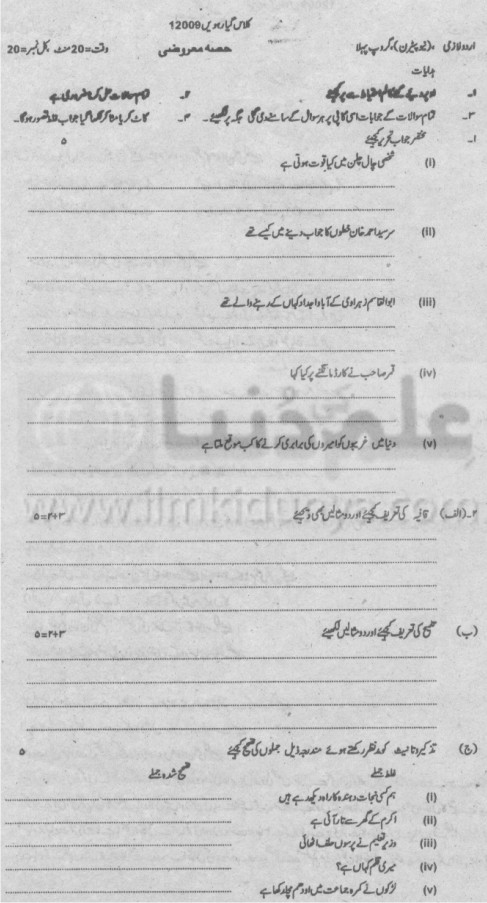 کلاس گیارھویں 12009
اردو لازمی (نیو پیٹرن) گروپ پہلا حصہ معروضی وقت=20 منٹ کل نمبر=20
ہدایات
۱۔ ۲۔ تمام سوالات حل کرنا ضروری ہے
۳۔ تمام سوالات کے جوابات اسی کاپی پر ہر سوال کے سامنے دی گئی جگہ پر لکھیئے۔ ۴۔ کاٹ کر یا مٹا کر لکھا گیا جواب غلط تصور ہوگا۔
۱۔ مختصر جواب تحریر کیجئے ۵
(i) شخصی چال چلن میں کیا قوت ہوتی ہے
(ii) سرسید احمد خان خطوں کا جواب دینے میں کیسے تھے
(iii) ابوالقاسم زہراوی کے آباؤ اجداد کہاں کے رہنے والے تھے
(iv) قمر صاحب نے کارڈ مانگنے پر کیا کہا
(v) دنیا میں غریبوں کو امیروں کی برابری کرنے کا کب موقع ملتا ہے
علم کی دنیا
www.ilmkidunya.com
۲۔(الف) قافیہ کی تعریف کیجئے اور دو مثالیں بھی دیجئے ۵=۲+۳
(ب) تلمیح کی تعریف کیجئے اور دو مثالیں لکھیئے ۵=۲+۳
(ج) تذکیر و تانیث کو مدنظر رکھتے ہوئے مندرجہ ذیل جملوں کی تصحیح کیجئے ۵
غلط جملے تصحیح شدہ جملے
(i) ہم کسی نجات دہندہ کا راہ دیکھ رہے ہیں
(ii) اکرم کے گھر سے تار آئی ہے
(iii) وزیر تعلیم نے پرسوں حلف اٹھائی
(iv) میری قلم کہاں ہے؟
(v) لڑکوں نے کمرہ جماعت میں اودھم مچا رکھا ہے